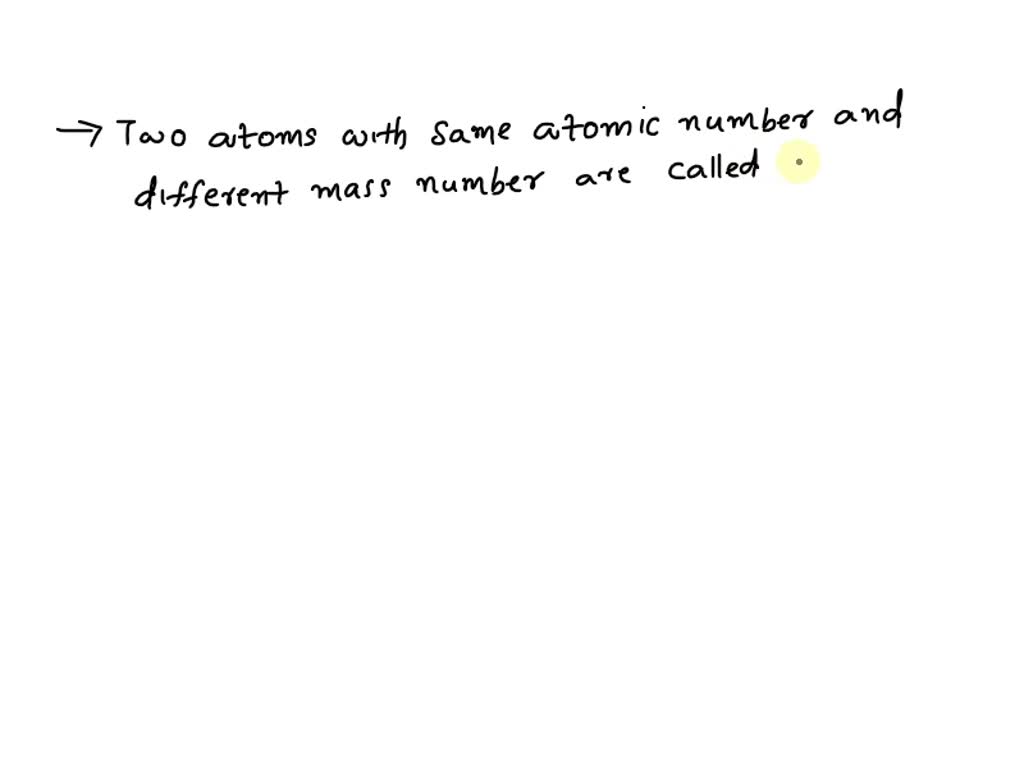 → Two atoms with same atomic number and
different mass number are called